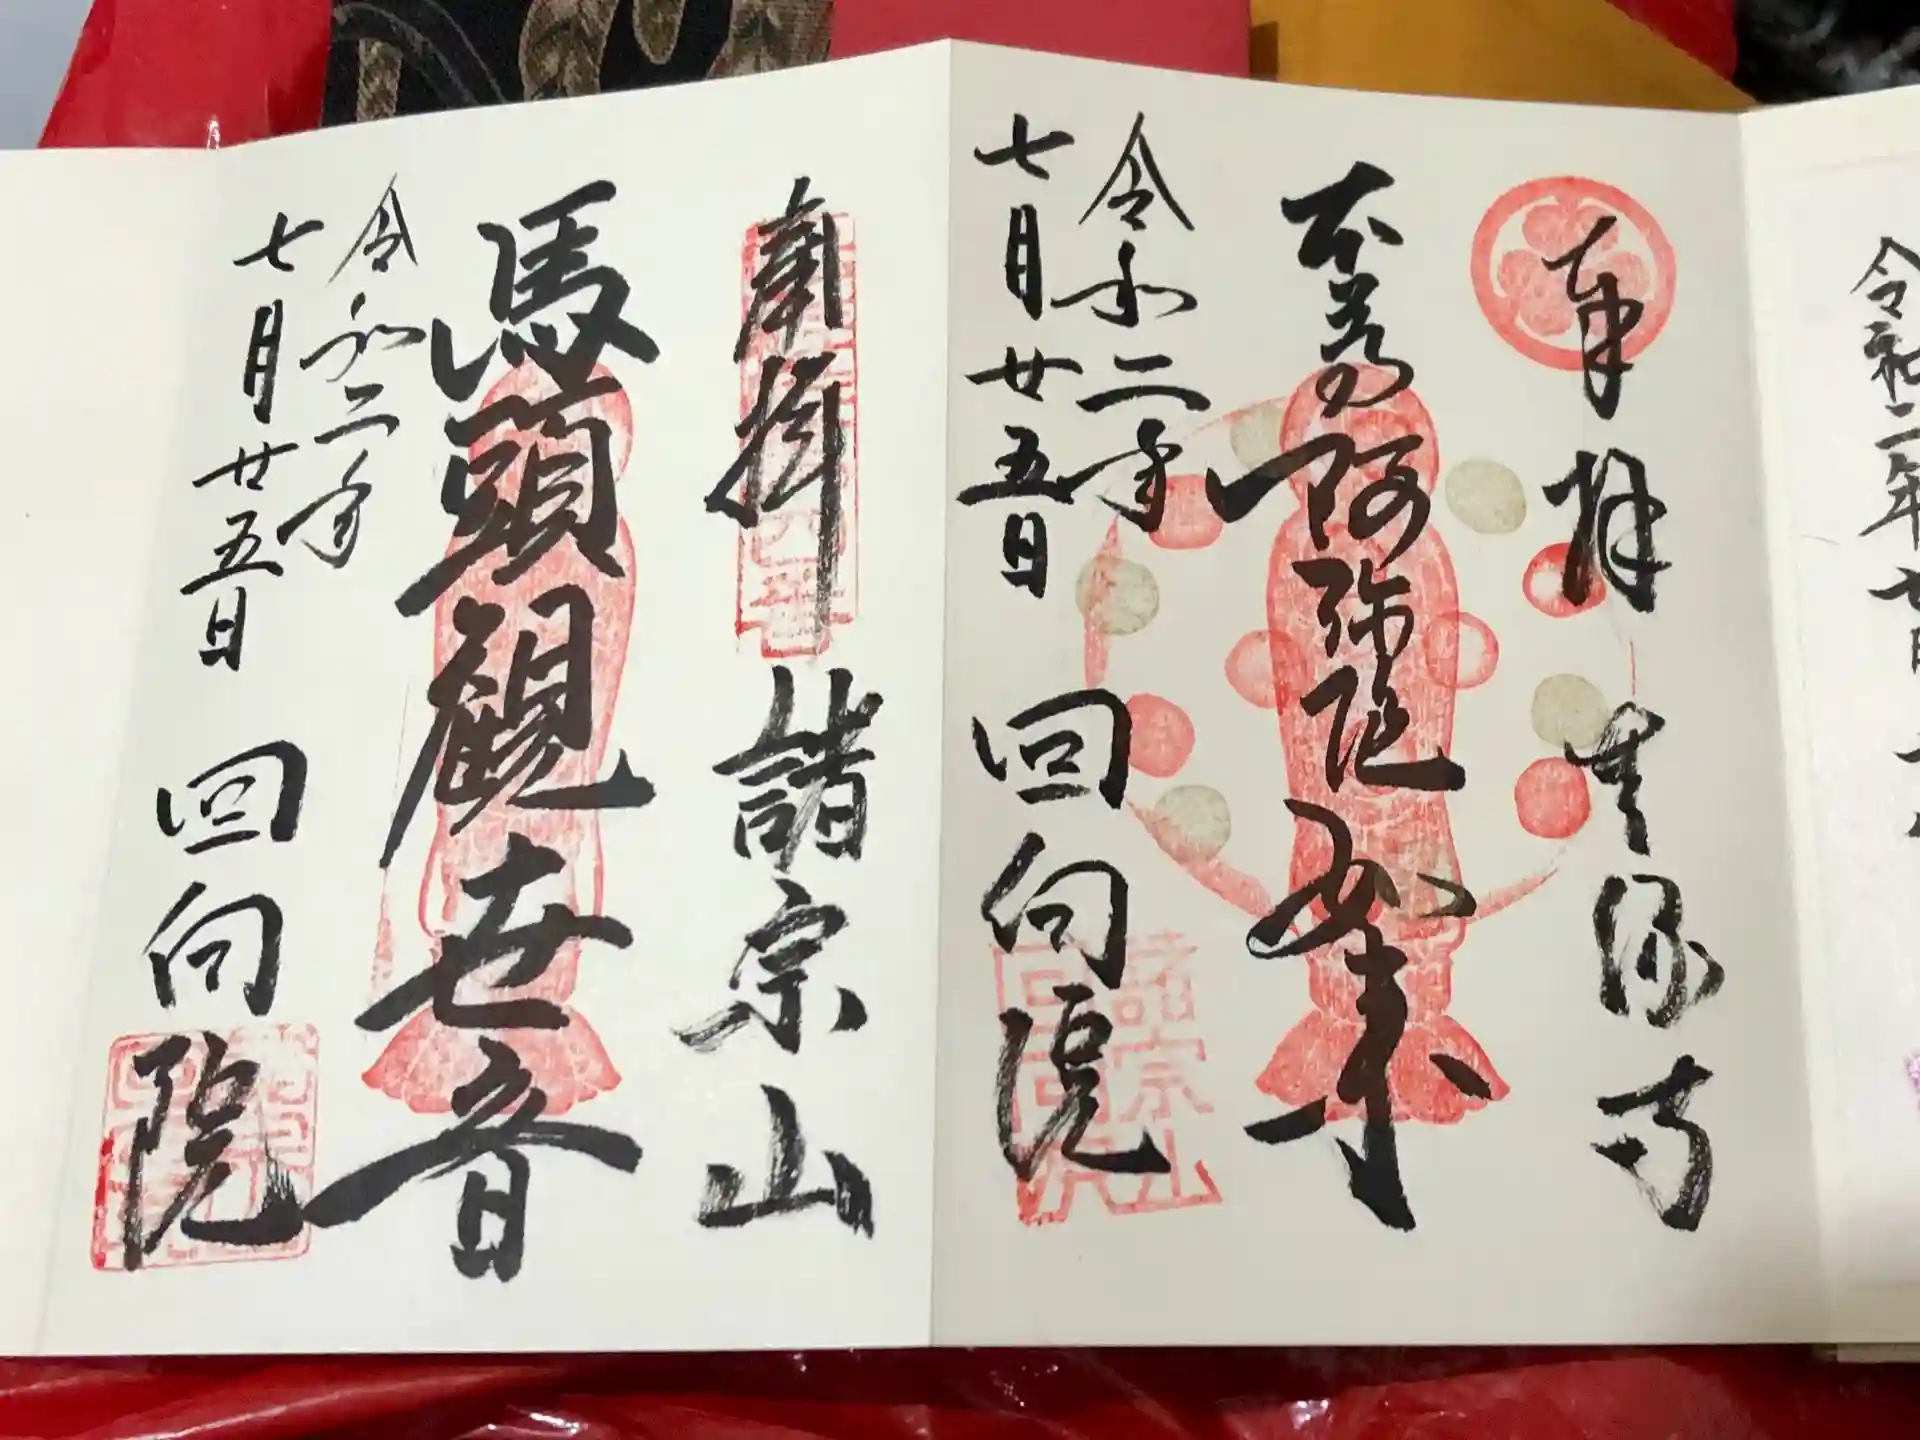 奉拝
無縁寺
本尊阿弥陀如来
令和二年
七月廿五日
回向院
諸宗山
奉拝
諸宗山
馬頭観世音
令和二年
七月廿五日
回向院
令和二年